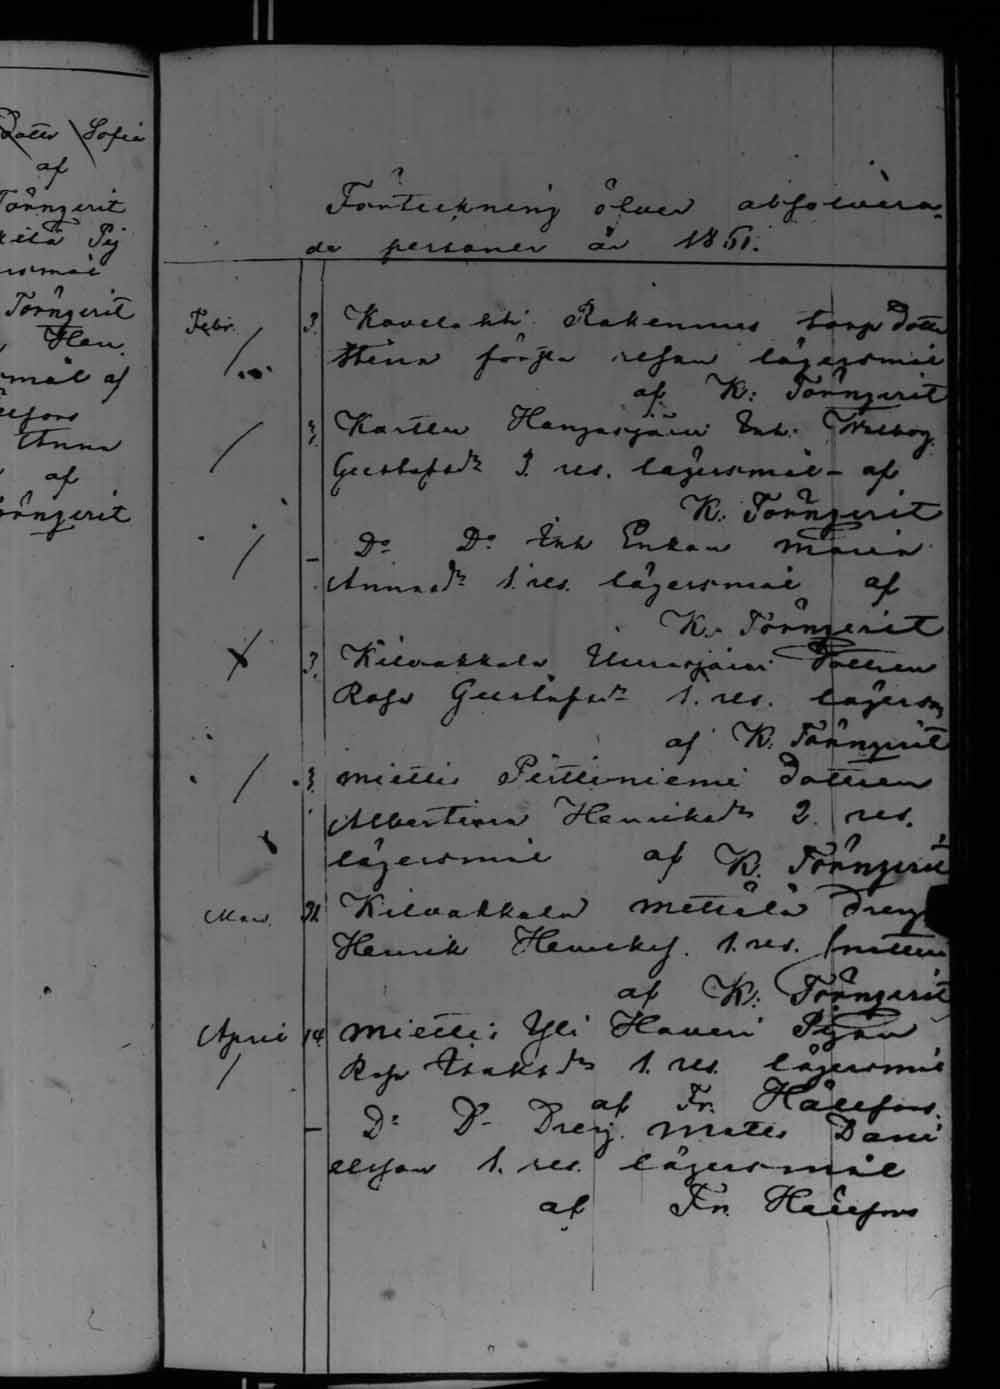 Dotter Sofia
af
Törnqvist
Pig
lägersmål
Törnqvist
mål af
Hällfors
Anna
af
Törnqvist
Förteckning öfver absolvera-
de personer år 1851.
Febr. 3. Kovelahti Rokennus torp Dotter
Stina första resan lägersmål
af K: Törnqvist
3. Karttu Hangasjärvi Enk: Walborg
Gustafsdr 3. res. lägersmål - af
K. Törnqvist
– Do Do Enk Enkan Maria
Annasdr 1. res. lägersmål af
K. Törnqvist
3. Kilvakkala Dottren
Rosa Gustafsdr 1. res. lägersm
af K. Törnqvist
3. Miettis Perttiniemi Dottren
Albertina Henriksdr 2. res.
lägersmål af K. Törnqvist
Mars 31 Kilvakkala Mettälä Dreng
Henrik Henriks. 1. res.
af K: Törnqvist
April 14 Miettis Yli Haveri Pigan
Rosa Isaksdr 1. res. lägersmål
af Fr. Hällfors.
– Do Do Dreng. Matts Dani
elsson 1. res. lägersmål
af Fr. Hällfors